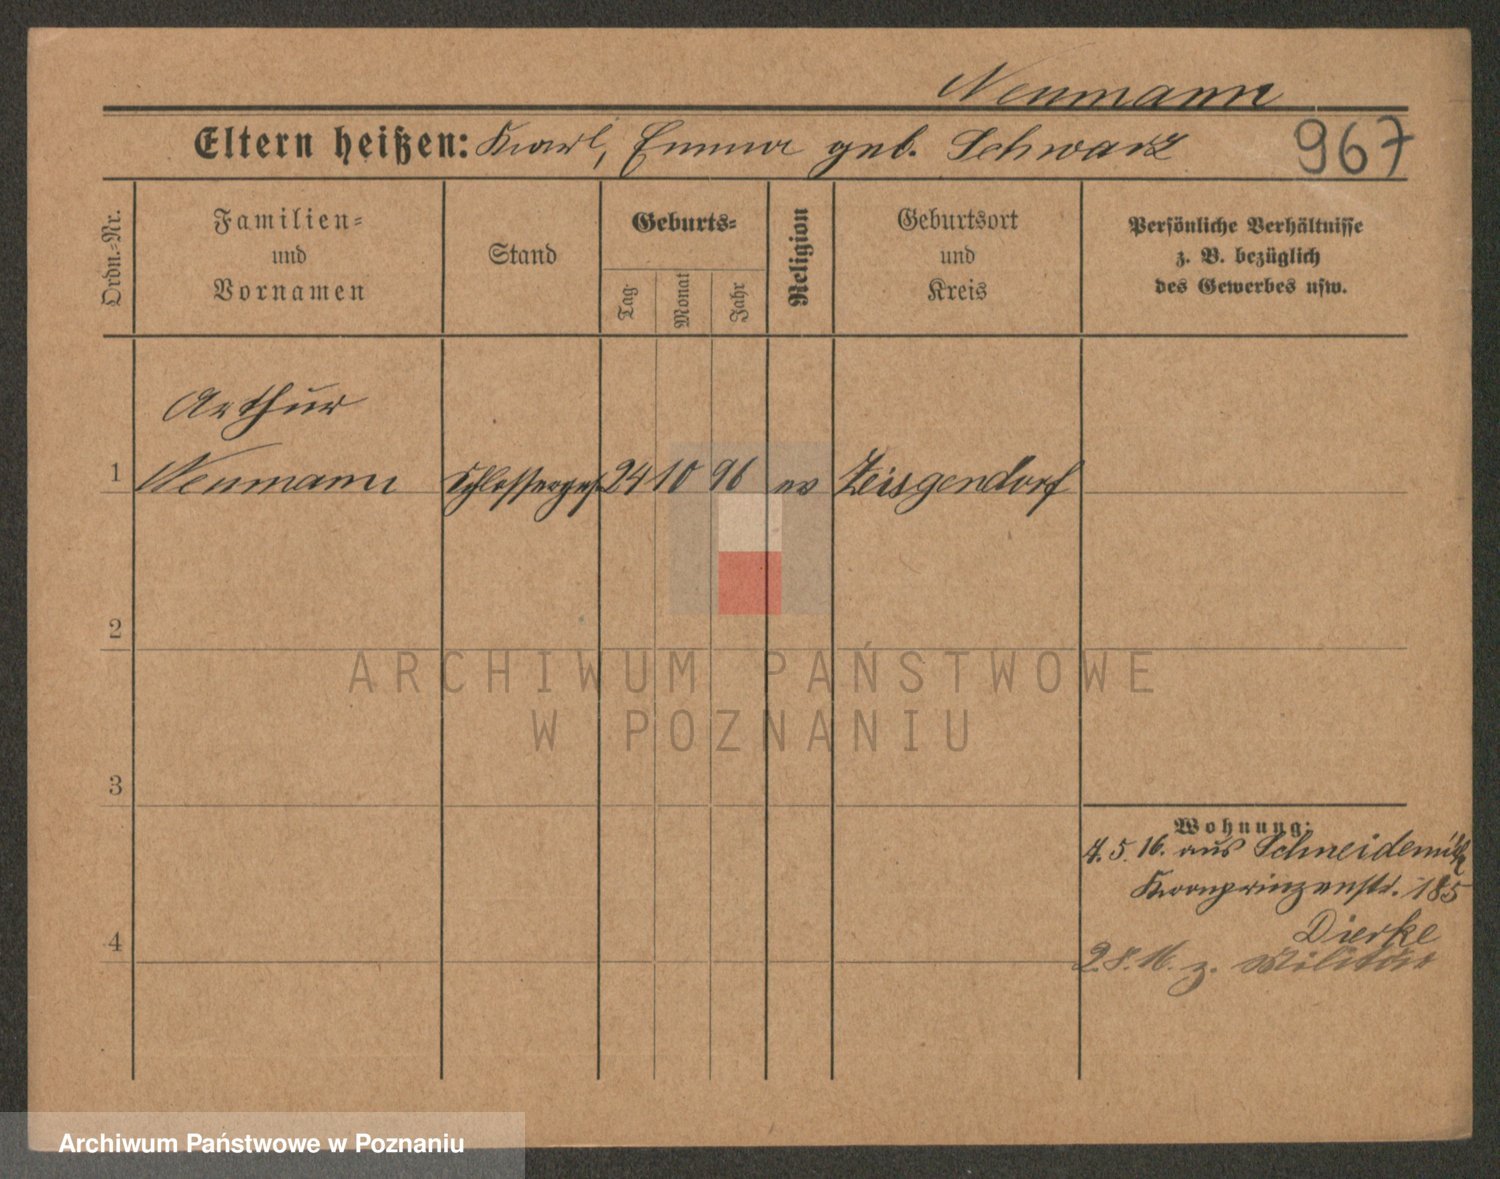 Neumann
Eltern heißen: Karl, Emma geb. Schwarz
967
Ordn.-Nr.
Familien-
und
Vornamen
Stand
Geburts-
Tag
Monat
Jahr
Religion
Geburtsort
und
Kreis
Persönliche Verhältnisse
z. B. bezüglich
des Gewerbes usw.
Arthur
1 Neumann Schlosserges. 24 10 96 ev Zeisgendorf
2
ARCHIWUM PAŃSTWOWE
W POZNANIU
3
Wohnung:
4.5.16. aus Schneidemühl
Kronprinzenstr. 185
Dierke
4
2.8.16. z. Militär
Archiwum Państwowe w Poznaniu